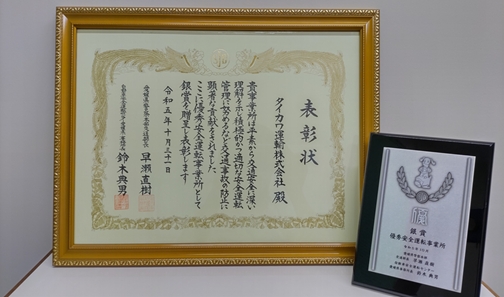 表彰状
タイカワ運輸株式会社 殿
貴事業所は平素から交通安全に深い
理解を示し積極的かつ適切な安全運転
管理に努めるなど交通事故の防止に
顕著な貢献をされました
ここに優秀安全運転事業所として
銀賞を贈呈し表彰します
令和五年十月三十一日
早瀬直樹
鈴木典男
銀賞
優秀安全運転事業所